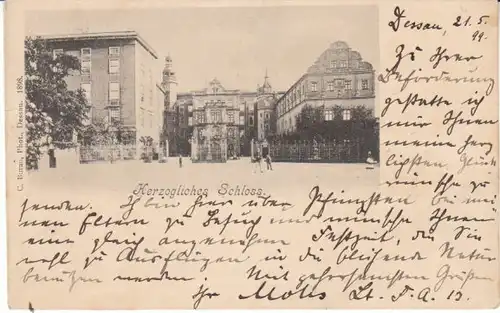 C. Borau, Phot., Dessau. 1898.
Dessau, 21. 5.
99.
Zu Ihrer
Beförderung
gestatte ich
mir Ihnen
meine herz
lichsten Glück
wünsche zu
Herzogliches Schloss.
senden. Ich bin hier über Pfingsten bei mei
nen Eltern zu Besuch und wünsche Ihnen
eine gleich angenehme Festzeit, die Sie
wohl zu Ausflügen in die blühende Natur
benützen werden. Mit gehorsamsten Grüßen
Ihr Lt. F. A. 13.